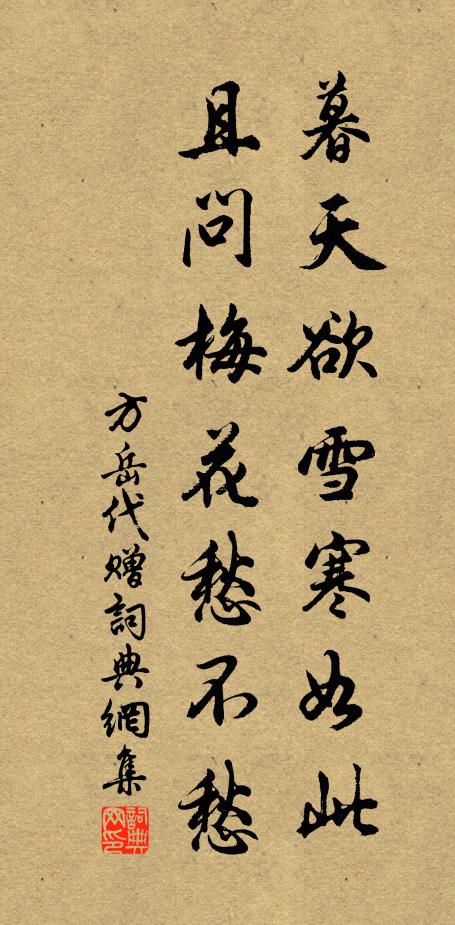 暮天欲雪寒如此
且問梅花愁不愁
方岳代贈詞典網集
詞典网印